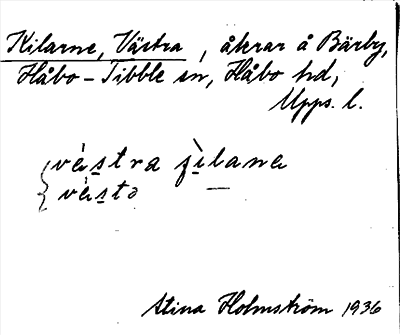 Kilarne, Västra, åkrar å Bärby,
Håbo-Tibble sn, Håbo hd,
Upps. l.
vèstra ʃìlana
vèstə —
Stina Holmström 1936